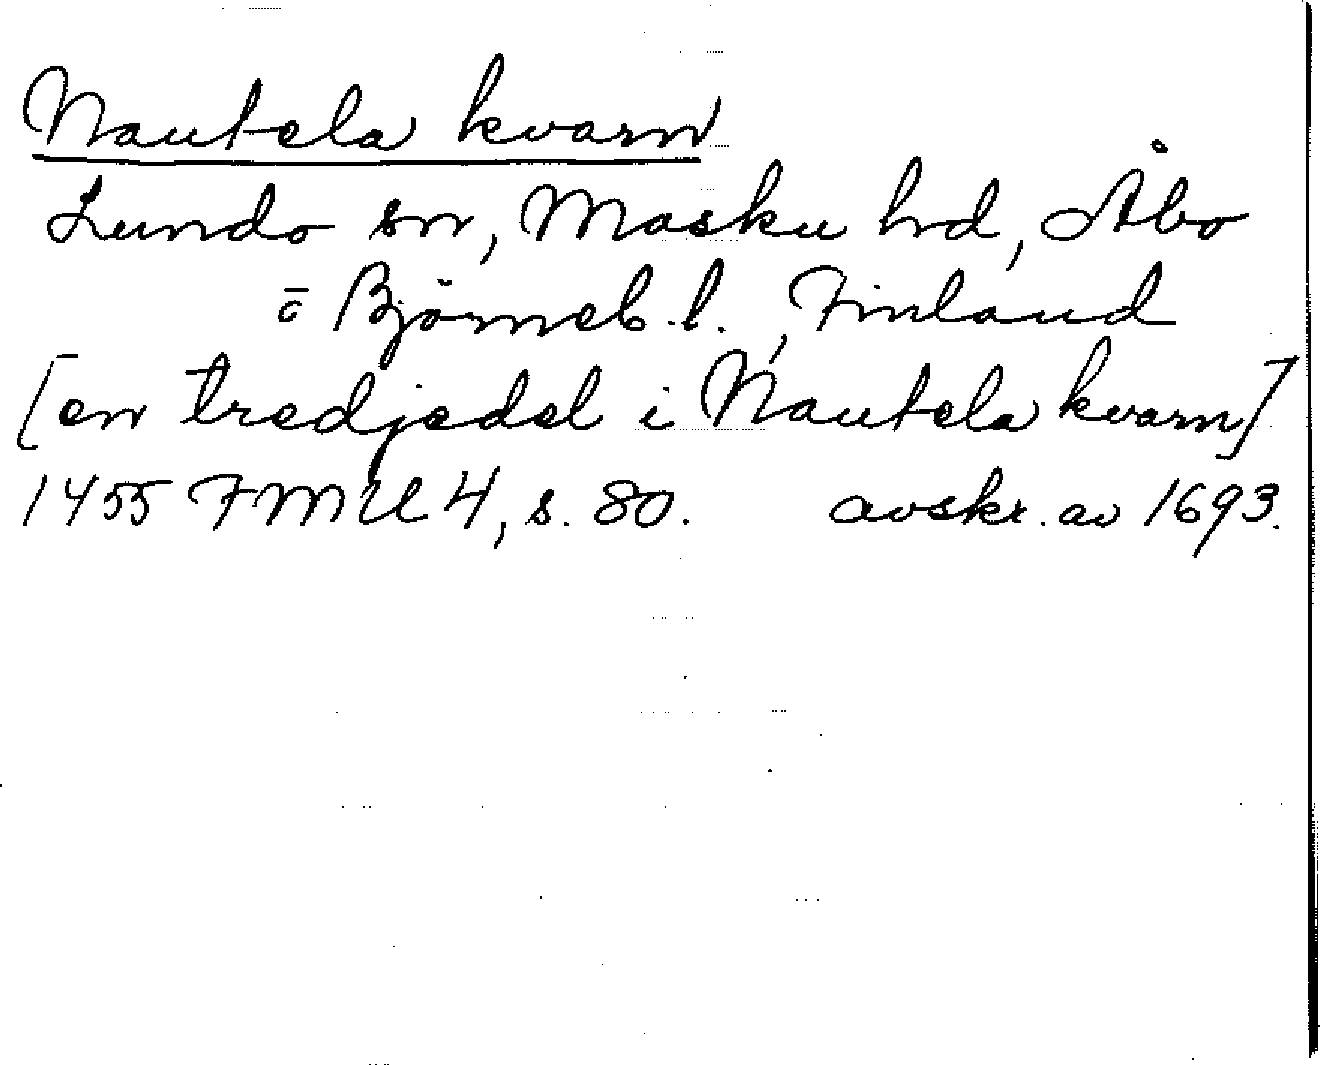 Nautela kvarn
Lundo sn, Masku hd, Åbo
o̅ Björneb. l., Finland
[en tredjedel i Nautela kvarn]
1455 FMU 4, s. 80. avskr. av 1693.